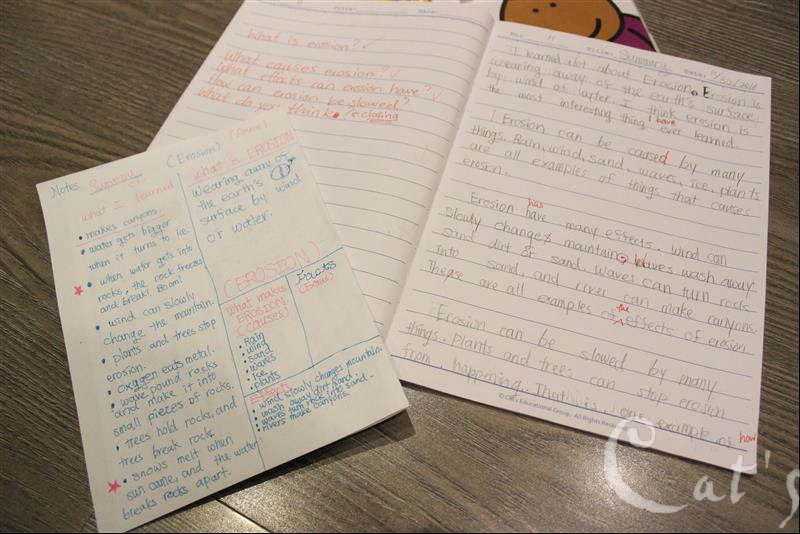 What is erosion? ✓
What causes erosion? ✓
What effects can erosion have? ✓
How can erosion be slowed?
What do you think. & closing
Title: Summary
I learned alot about Erosion. Erosion is
wearing away of the earth's surface
by wind of water. I think erosion is
the most interesting thing I have ever learned.
Erosion can be caused by many
things. Rain, wind, sand, waves, ice, plants
are all examples of things that causes
erosion.
Erosion has have many effects. Wind can
slowly change mountain. Waves wash away
sand dirt & sand. Waves can turn rocks
into sand, and river can make canyons.
These are all examples of the effects of erosion
Erosion can be slowed by many
things. Plants and trees can stop erosion
from happening. That is one example of how
© Cat's Educational Group. All Rights Reserved
Notes Summary (Erosion)
what I learned
• makes canyons
• water gets bigger
when it turns to ice.
• when water gets into
rocks, the rock freezes
and break! Boom!
• wind can slowly
change the mountain.
• plants and trees stop
erosion.
• oxygen eats metal.
• wave pound rocks
and make it into
small pieces of rocks.
• trees hold rocks and
trees break rocks
• snows melt when
sun came, and the water
breaks rocks apart.
what is EROSION
Wearing away of
the earth's
surface by wind
or water.
(EROSION)
What makes
EROSION
(causes)
• Rain
• wind
• Sand
• waves
• ice
• plants
Effects
• wind slowly changes mountain.
• wash away dirt sand
• waves turn rock into sand.
• rivers make canyons.
Cat's